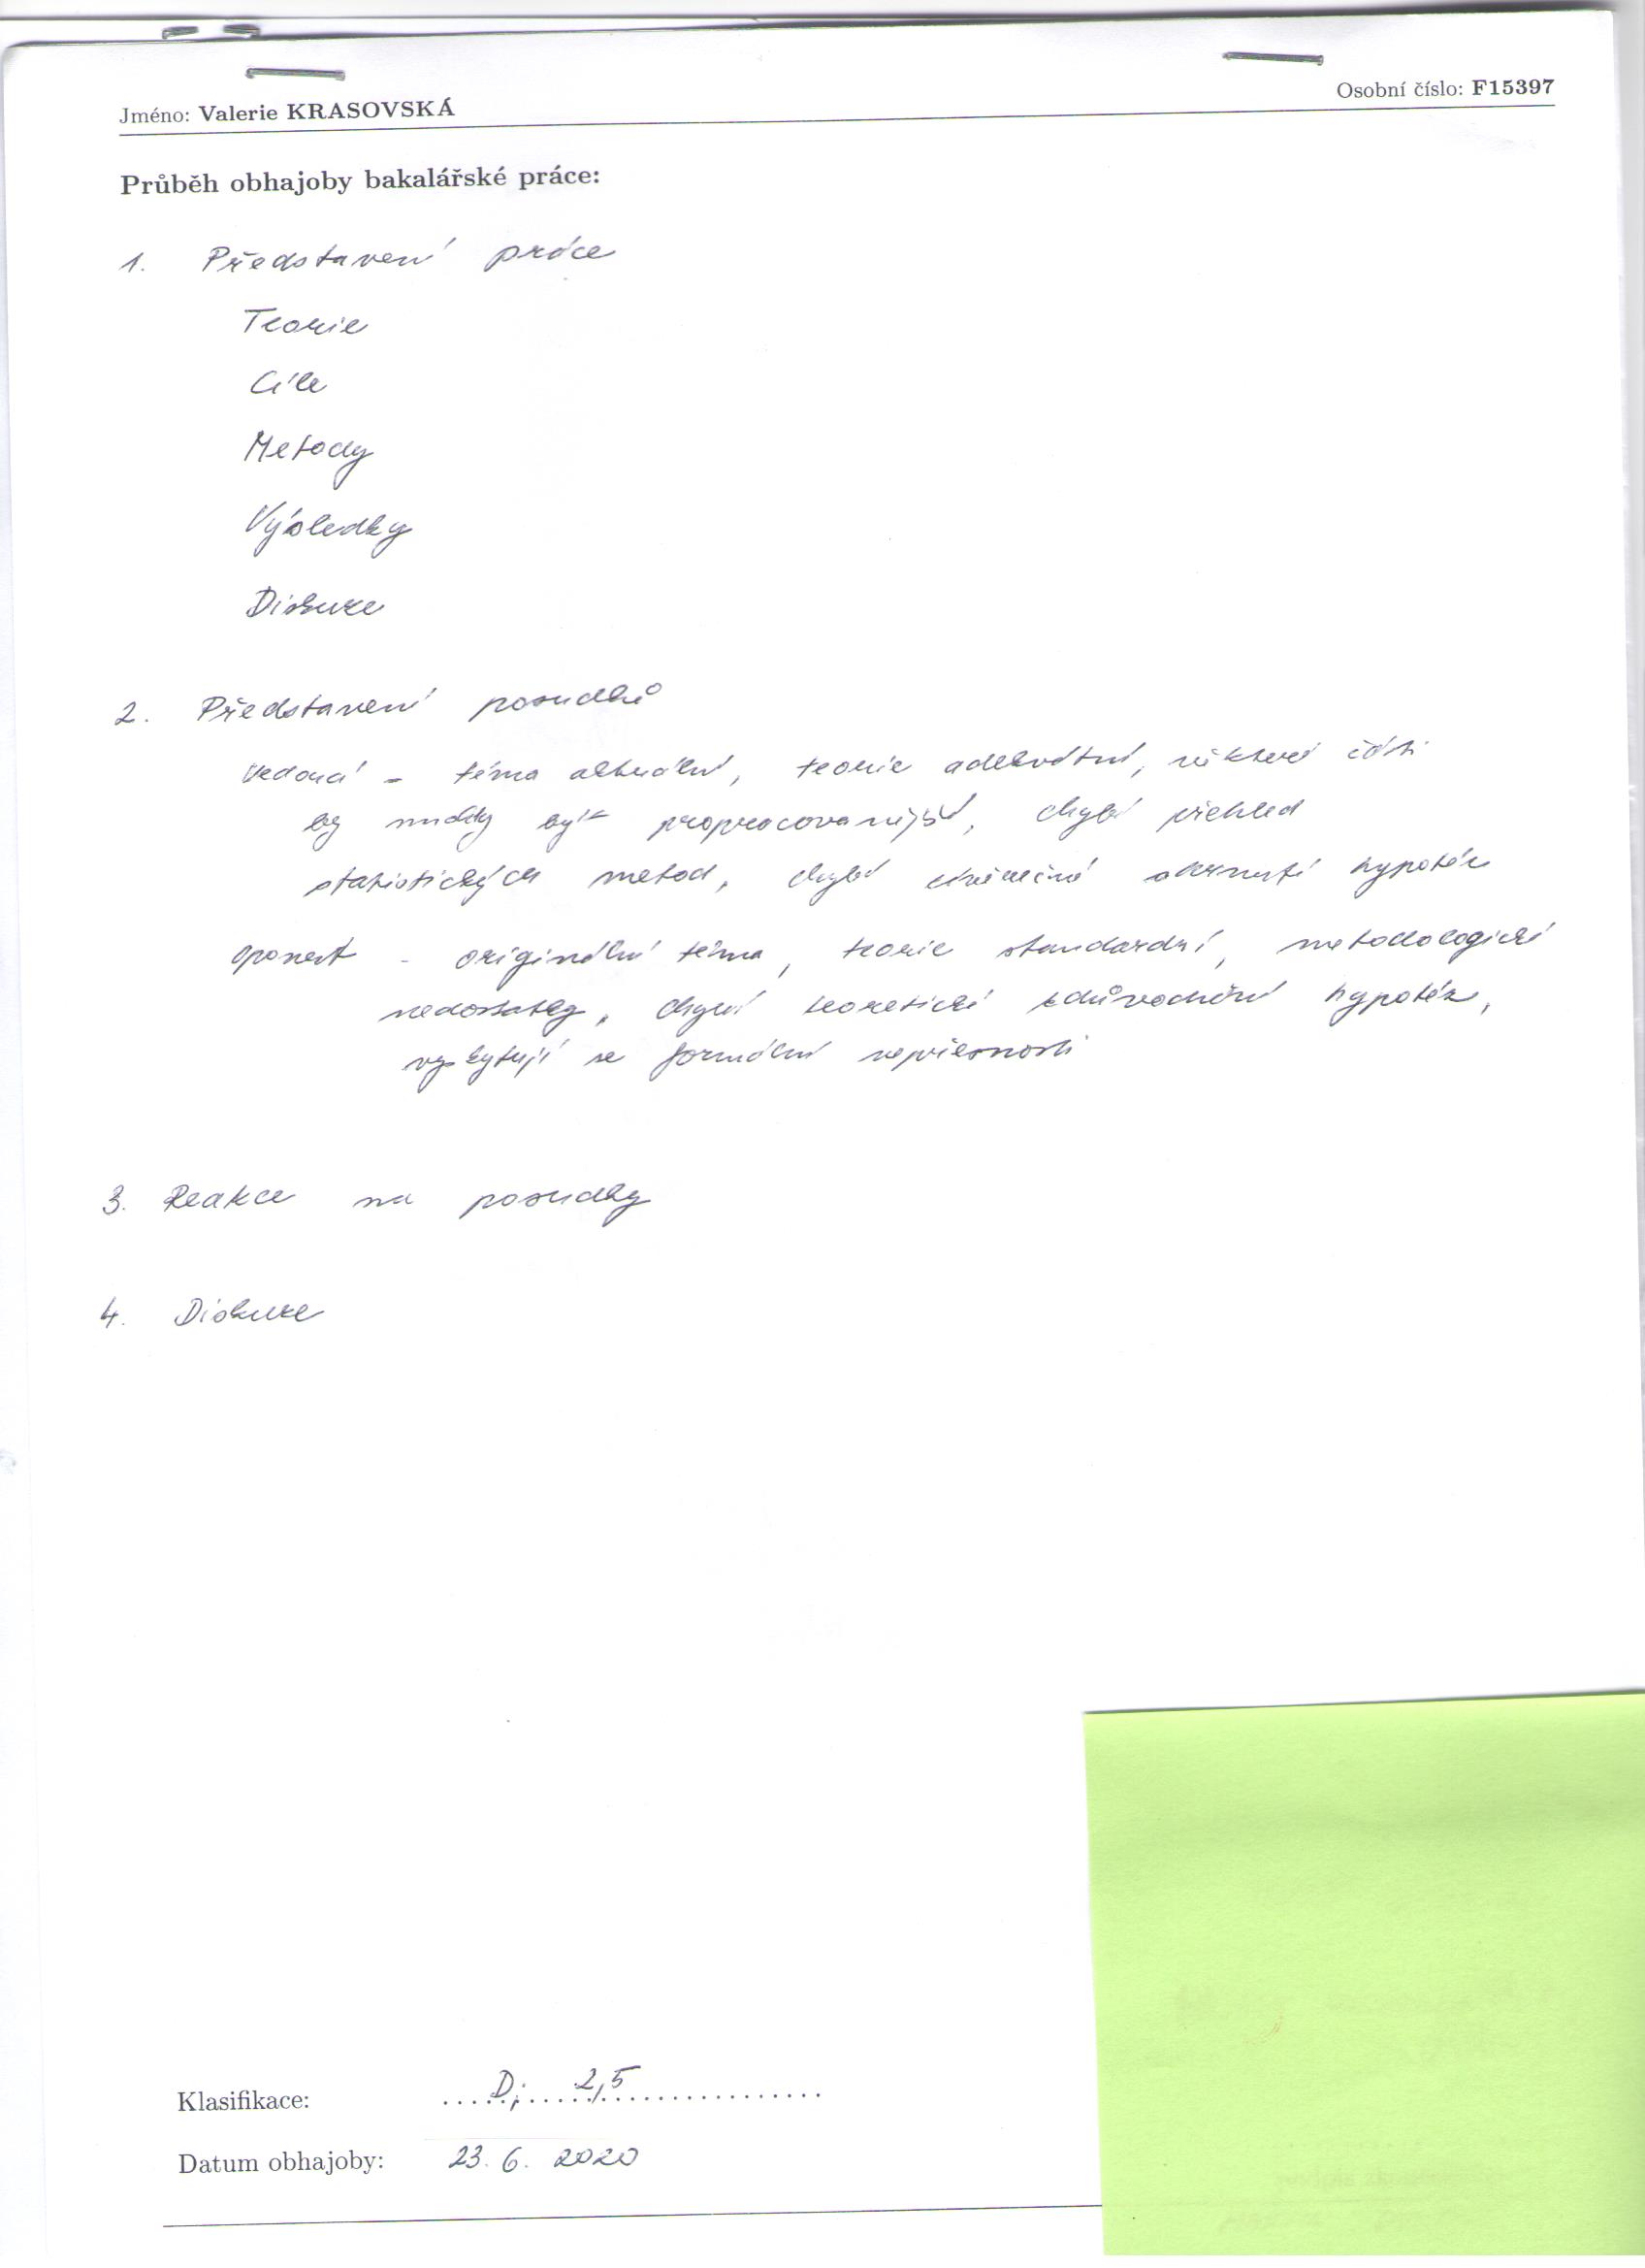 Jméno: Valerie KRASOVSKÁ
Osobní číslo: F15397
Průběh obhajoby bakalářské práce:
1. Představení práce
Teorie
Cíle
Metody
Výsledky
Diskuze
2. Představení posudků
Vedoucí - téma aktuální, teorie adekvátní, některé části
by mohly být propracovanější, chybí přehled
statistických metod, chybí závěrečné shrnutí hypotéz
oponent - originální téma, teorie standardní, metodologické
nedostatky, chybí teoretické zdůvodnění hypotéz,
vyskytují se formální nepřesnosti
3. Reakce na posudky
4. Diskuze
Klasifikace: D; 2,5
Datum obhajoby: 23. 6. 2020